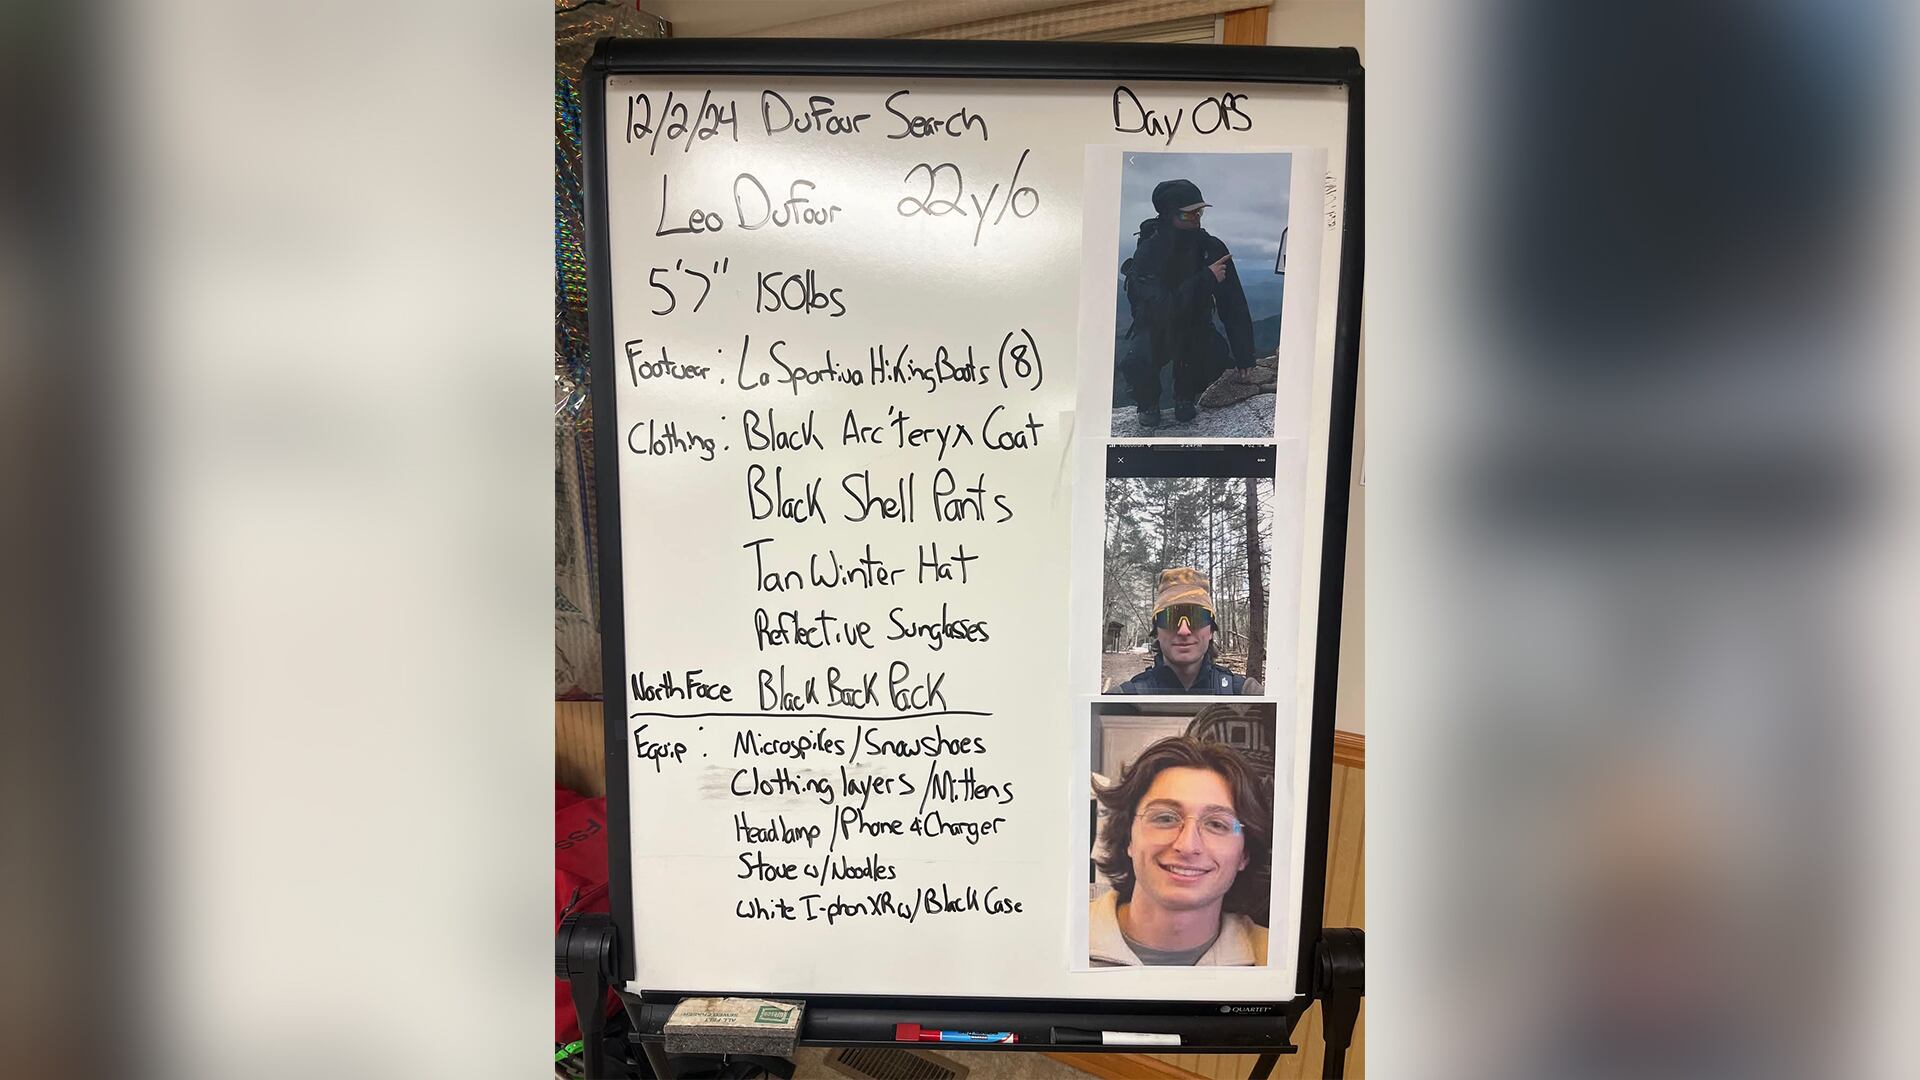 12/2/24 DuFour Search
Day OPS
Leo DuFour 22y/o
5'7" 150lbs
Footwear: La Sportiva Hiking Boots (8)
Clothing: Black Arc'teryx Coat
Black Shell Pants
Tan Winter Hat
Reflective Sunglasses
North Face Black Back Pack
Equip: Microspikes/Snowshoes
Clothing layers/Mittens
Headlamp/Phone & Charger
Stove w/Noodles
White I-phon XR w/Black Case
QUARTET
ALL FELT